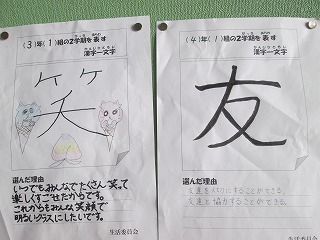 (3)年(1)組の2学期を表す
漢字一文字
笑
選んだ理由
いつでもみんなでたくさん笑って
楽しくすごせたからです。
これからもみんな笑顔で
明るいクラスにしたいです。
生活委員会
(4)年(1)組の2学期を表す
漢字一文字
友
選んだ理由
友達を大切にすることができる。
友達と協力することができる。
生活委員会